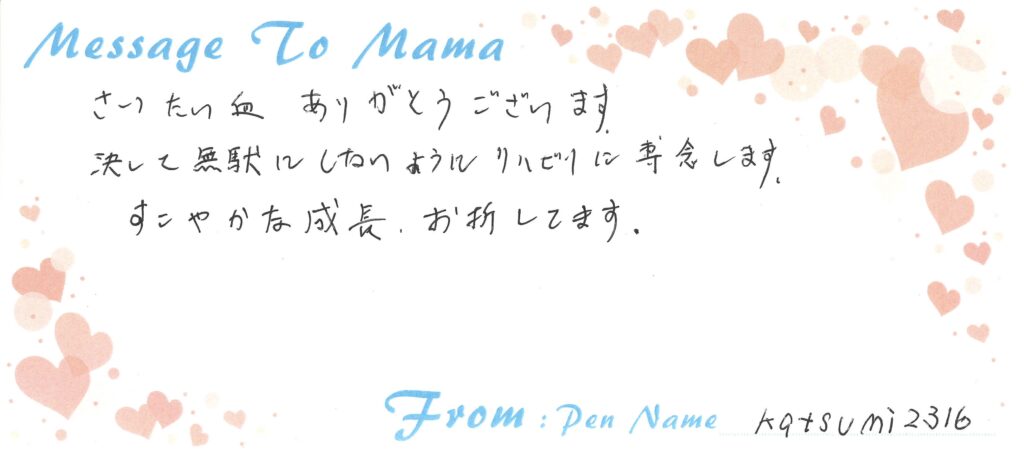 Message To Mama
さいたい血 ありがとうございます。
決して無駄にしないようにリハビリに専念します。
すこやかな成長、お祈してます。
From : Pen Name katsumi2316